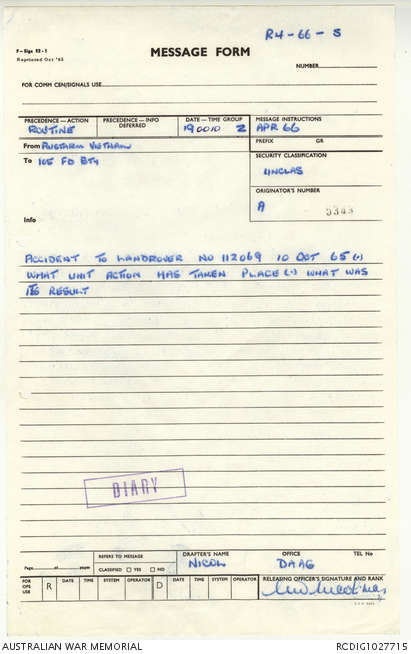 R4-66-S
F-Sigs 52-1
Reprinted Oct '65
MESSAGE FORM
NUMBER
FOR COMM CEN/SIGNALS USE
PRECEDENCE—ACTION
ROUTINE
PRECEDENCE—INFO
DEFERRED
DATE—TIME GROUP
190010 Z
MESSAGE INSTRUCTIONS
APR 66
From AUSTARM VIETNAM
PREFIX GR
To 105 FD BTY
SECURITY CLASSIFICATION
UNCLAS
ORIGINATOR'S NUMBER
A 5343
Info
ACCIDENT TO LANDROVER NO 112069 10 OCT 65 (.)
WHAT UNIT ACTION HAS TAKEN PLACE (.) WHAT WAS
ITS RESULT
DIARY
Page of pages
REFERS TO MESSAGE
CLASSIFIED YES NO
DRAFTER'S NAME
NICOL
OFFICE
DAAG
TEL No
FOR OPS USE
R DATE TIME SYSTEM OPERATOR D DATE TIME SYSTEM OPERATOR
RELEASING OFFICER'S SIGNATURE AND RANK
AUSTRALIAN WAR MEMORIAL
RCDIG1027715